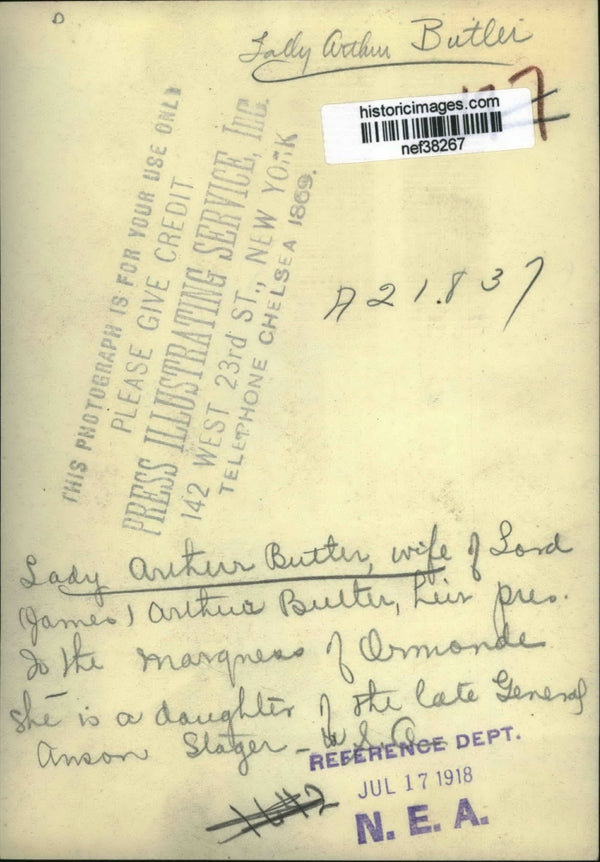 D
Lady Arthur Butler
historicimages.com
nef38267
7
THIS PHOTOGRAPH IS FOR YOUR USE ONLY
PLEASE GIVE CREDIT
PRESS ILLUSTRATING SERVICE, INC.
142 WEST 23rd ST., NEW YORK
TELEPHONE CHELSEA 1869.
A21.837
Lady Arthur Butler, wife of Lord
(James) Arthur Butler, heir pres.
to the marquess of Ormonde
She is a daughter of the late General
Anson Stager - U.S.A.
REFERENCE DEPT.
JUL 17 1918
N. E. A.
1642